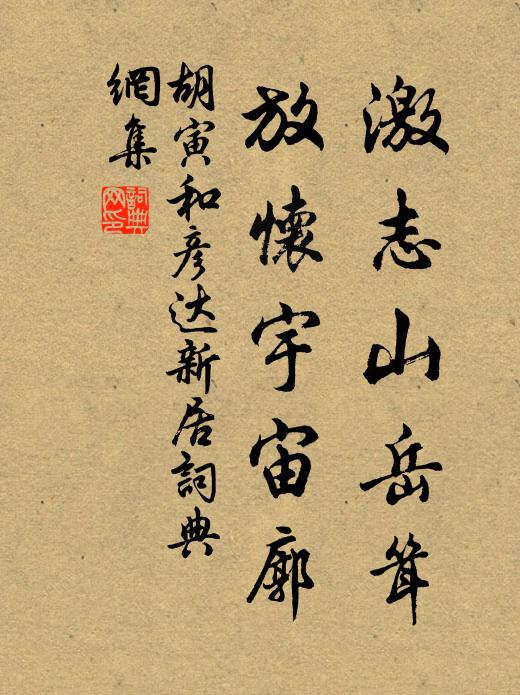 激志山岳耸
放懷宇宙廓
胡寅和彥达新居詞典
網集
詞典
网印